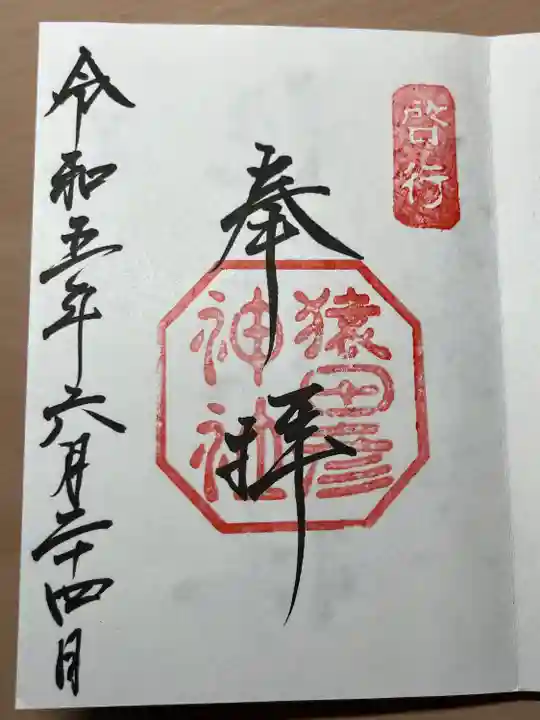 啓行
奉拝
猿田彦
神社
令和五年六月二十四日